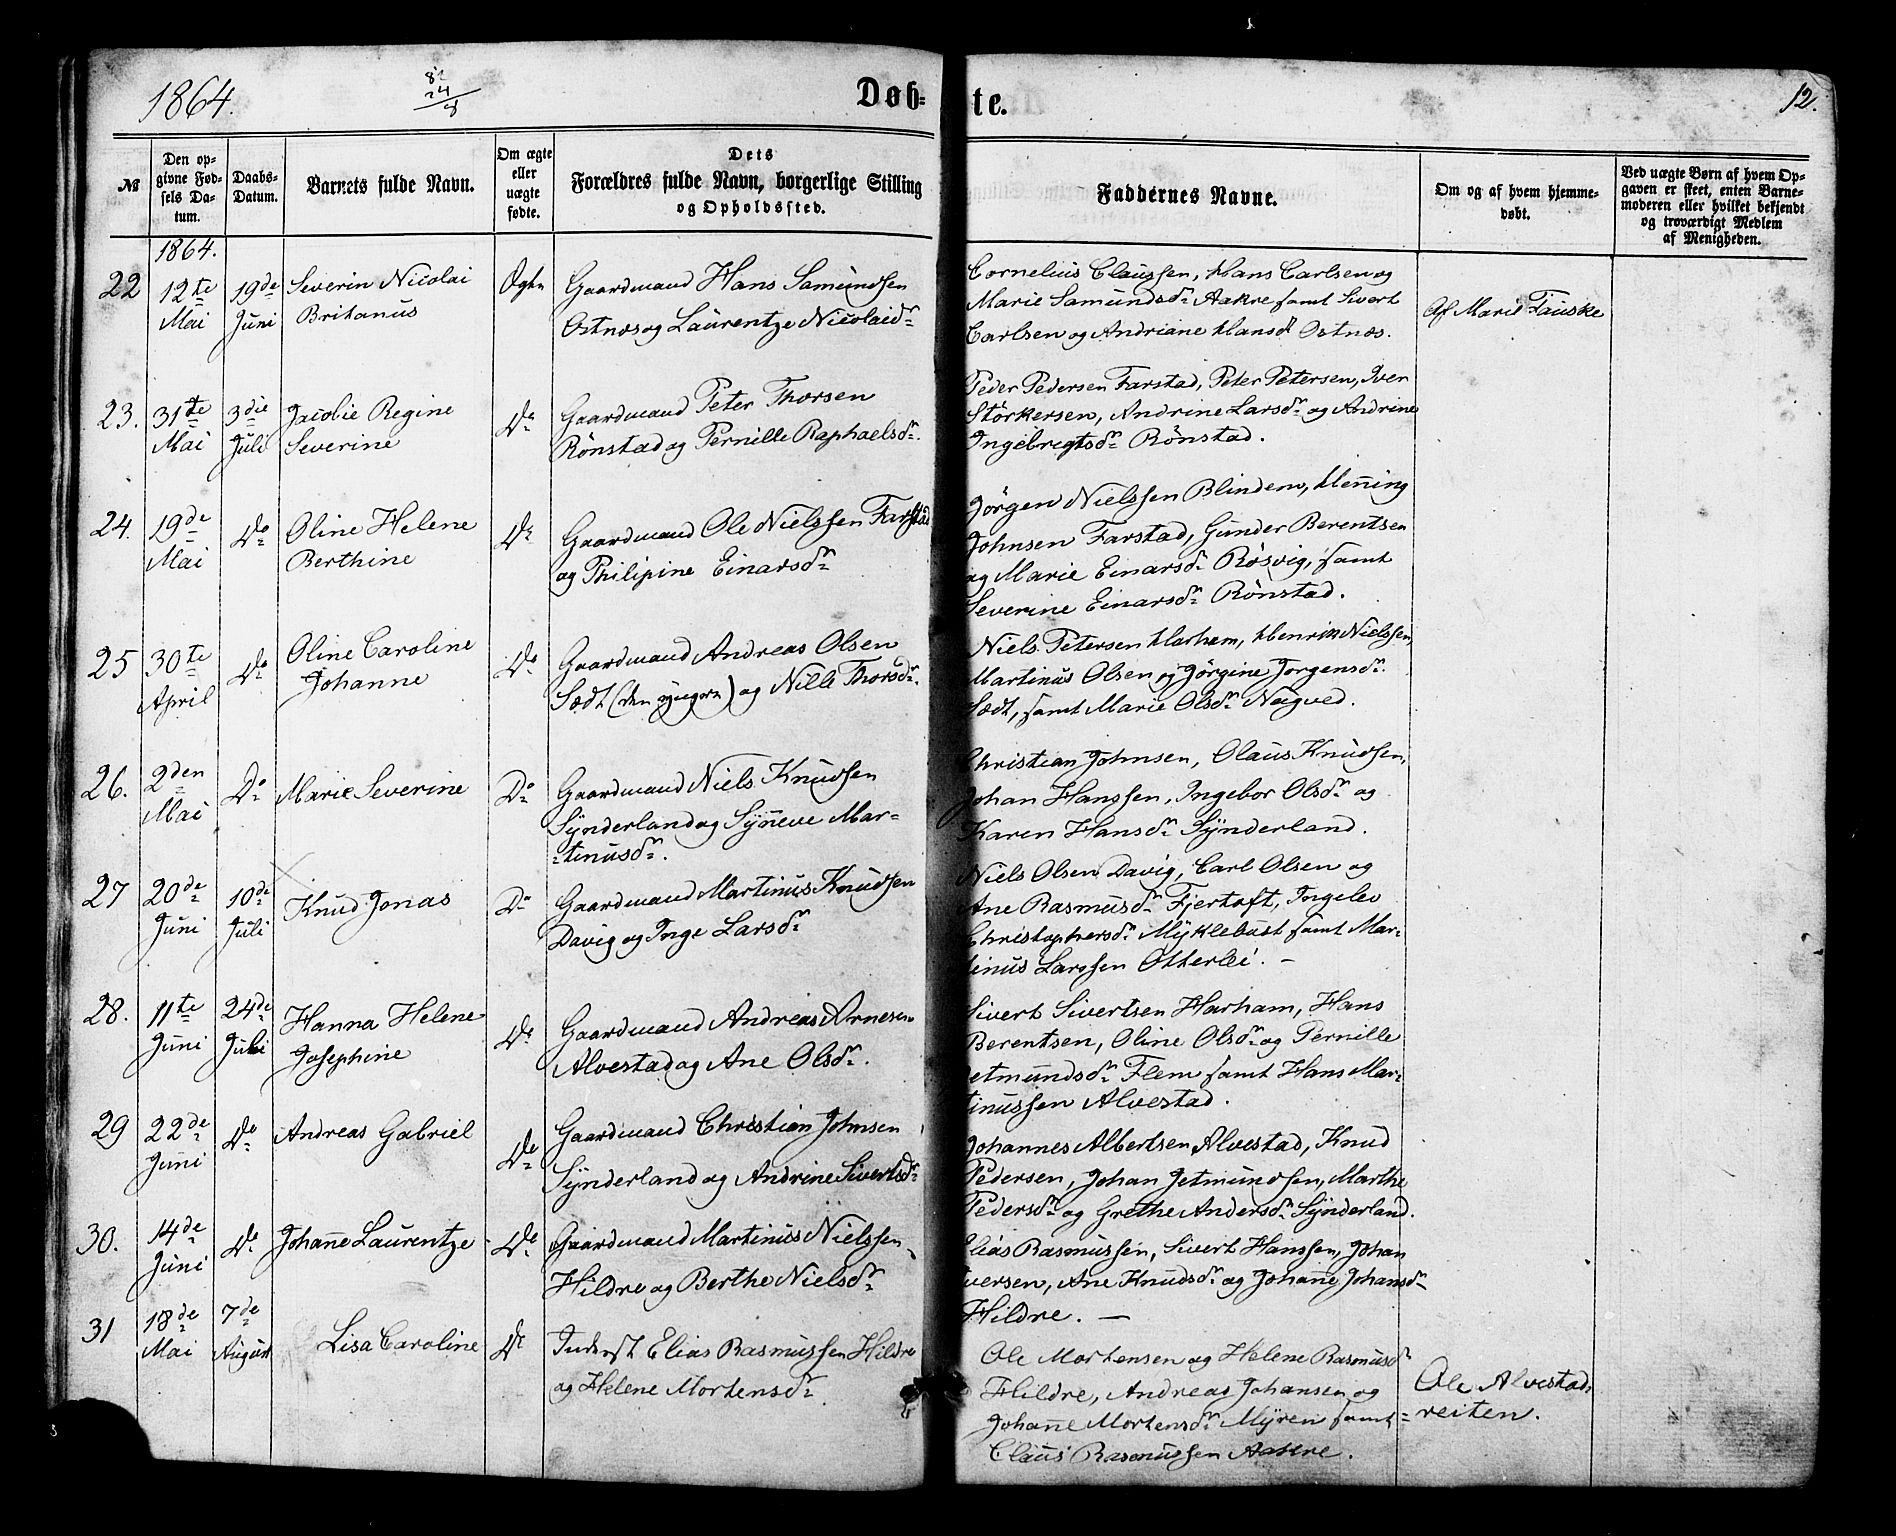 1864.
82
24
8
Døb-
te.
12.
№
Den op-
givne Fød-
sels Da-
tum.
Daabs-
Datum.
Barnets fulde Navn.
Om ægte
eller
uægte
fødte.
Dets
Forældres fulde Navn, borgerlige Stilling
og Opholdssted.
Faddernes Navne.
Om og af hvem hjemme-
døbt.
Ved uægte Børn af hvem Op-
gaven er skeet, enten Barne-
moderen eller hvilket bekjendt
og troværdigt Medlem
af Menigheden.
1864.
22
12te
Mai
19de
Juni
Severin Nicolai
Britanus
Ægte
Gaardmand Hans Samundsen
Ostnæs og Laurentze Nicolaidr
Cornelius Claussen, Hans Carlsen og
Marie Samundsdr Aakre samt Sivert
Carlsen og Andriane Hansdr Ostnæs.
Af Marie Fauske
23.
31te
Mai
3die
Juli
Jacobie Regine
Severine
Do
Gaardmand Peter Thorsen
Rönstad og Pernille Raphaelsdr.
Peder Pedersen Farstad, Peter Petersen, Iver
Störkersen, Andrine Larsdr og Andrine
Ingebregtsdr Rönstad.
24.
19de
Mai
Do
Oline Helene
Berthine
Do
Gaardmand Ole Nielssen Farstad
og Philipine Einarsdr
Jörgen Nielssen Blindem, Henning
Johnsen Farstad, Gunder Berentsen
og Marie Einarsdr Rösvig, samt
Severine Einarsdr Rönstad.
25
30te
April
Do
Oline Caroline
Johanne
Do
Gaardmand Andreas Olsen
Sædt (den yngere) og Nille Thorsdr.
Niels Petersen Harhem, Henrik Nielssen,
Martinus Olsen og Jörgine Jorgensdr
Sædt, samt Marie Olsdr Nogved.
26.
2den
Mai
Do
Marie Severine
Do
Gaardmand Niels Knudsen
Synderland og Synneve Mar-
-tinusdr.
Christian Johnsen, Olaus Knudsen,
Johan Hanssen, Ingebor Olsdr og
Karen Hansdr Synderland.
27
20de
Juni
10de
Juli
Knud Jonas
Do
Gaardmand Martinus Knudsen
Davig og Inge Larsdr
Niels Olsen Davig, Carl Olsen og
Ane Rasmusdr Fjertoft, Ingelev
Christophersdr Myklebust samt Mar-
tinus Larssen Otterlei. —
28.
11te
Juni
24de
Juli
Hanna Helene
Josephine
Do
Gaardmand Andreas Arnesen
Alvestad og Ane Olsdr.
Sivert Sivertsen Harham, Hans
Berentsen, Oline Olsdr og Pernille
Jetmundsdr Flem samt Hans Mar-
tinussen Alvestad.
29
22de
Juni
Do
Andreas Gabriel
Do
Gaardmand Christian Johnsen
Synderland og Andrine Sivertsdr
Johannes Albertsen Alvestad, Knud
Pedersen, Johan Jetmundsen, Marthe
Pedersdr og Grethe Andersdr Synderland.
30.
14de
Juni
Do
Johanne Laurentze
Do
Gaardmand Martinus Nielssen
Hildre og Berthe Nielsdr
Elias Rasmussen, Sivert Hanssen, Johan
Iversen, Ane Knudsdr og Johanne Johansdr
Hildre. —
31
18de
Mai
7de
August
Lisa Caroline
Do
Inderst Elias Rasmussen Hildre
og Helene Mortensdr
Ole Mortensen og Helene Rasmusdr
Hildre, Andreas Johansen og
Johanne Mortensdr Myren samt
Claus Rasmussen Aakre.
Ole Alvestad-
reiten.